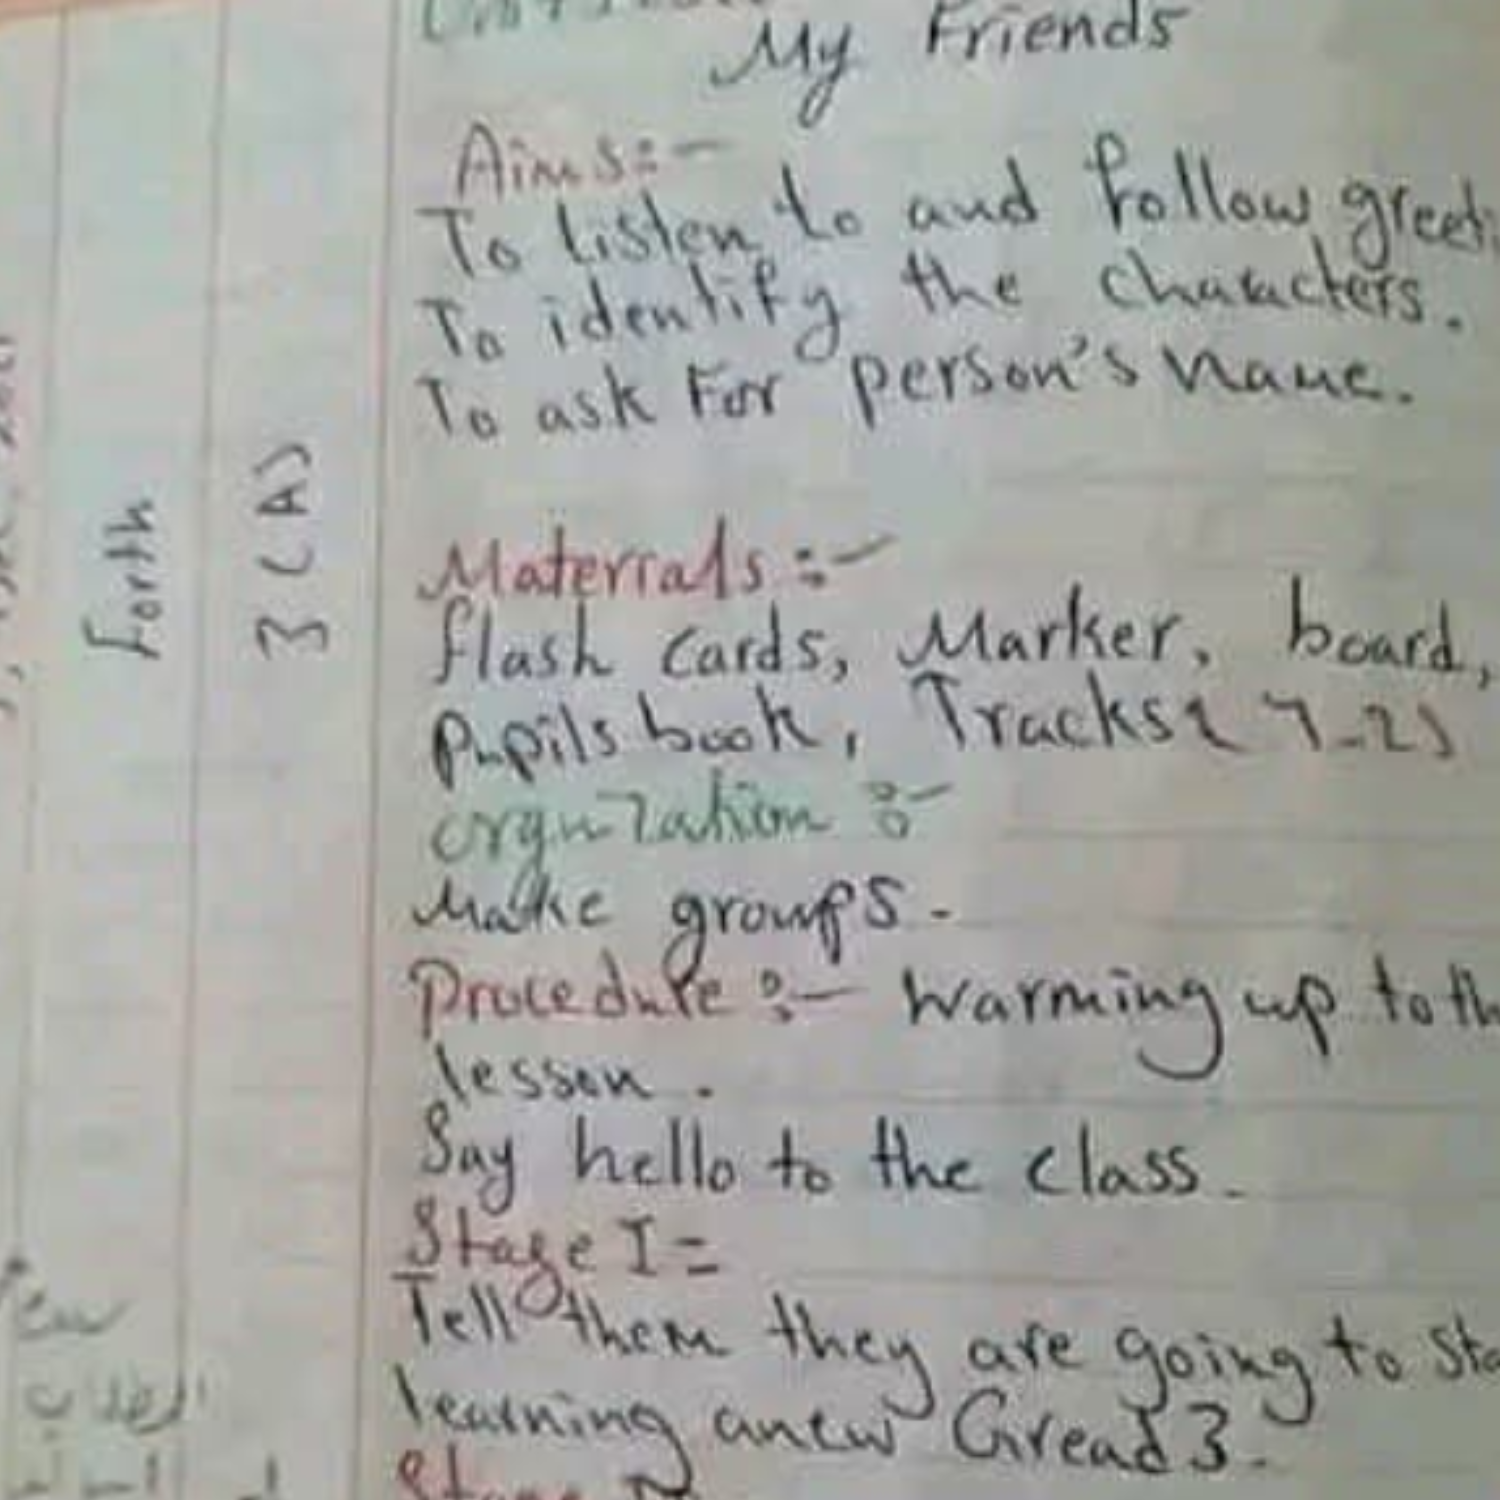 My Friends
Aims:-
To listen to and follow greeti
To identify the characters.
To ask For person's name.
Materials :-
flash cards, Marker, board,
Pupils book, Tracks( 1-2)
orgnization :-
Make groups.
Procedure :- Warming up to th
lesson.
Say hello to the class.
Stage I =
Tell them they are going to sta
learning anew Gread 3.
Stage
Forth
3 (A)